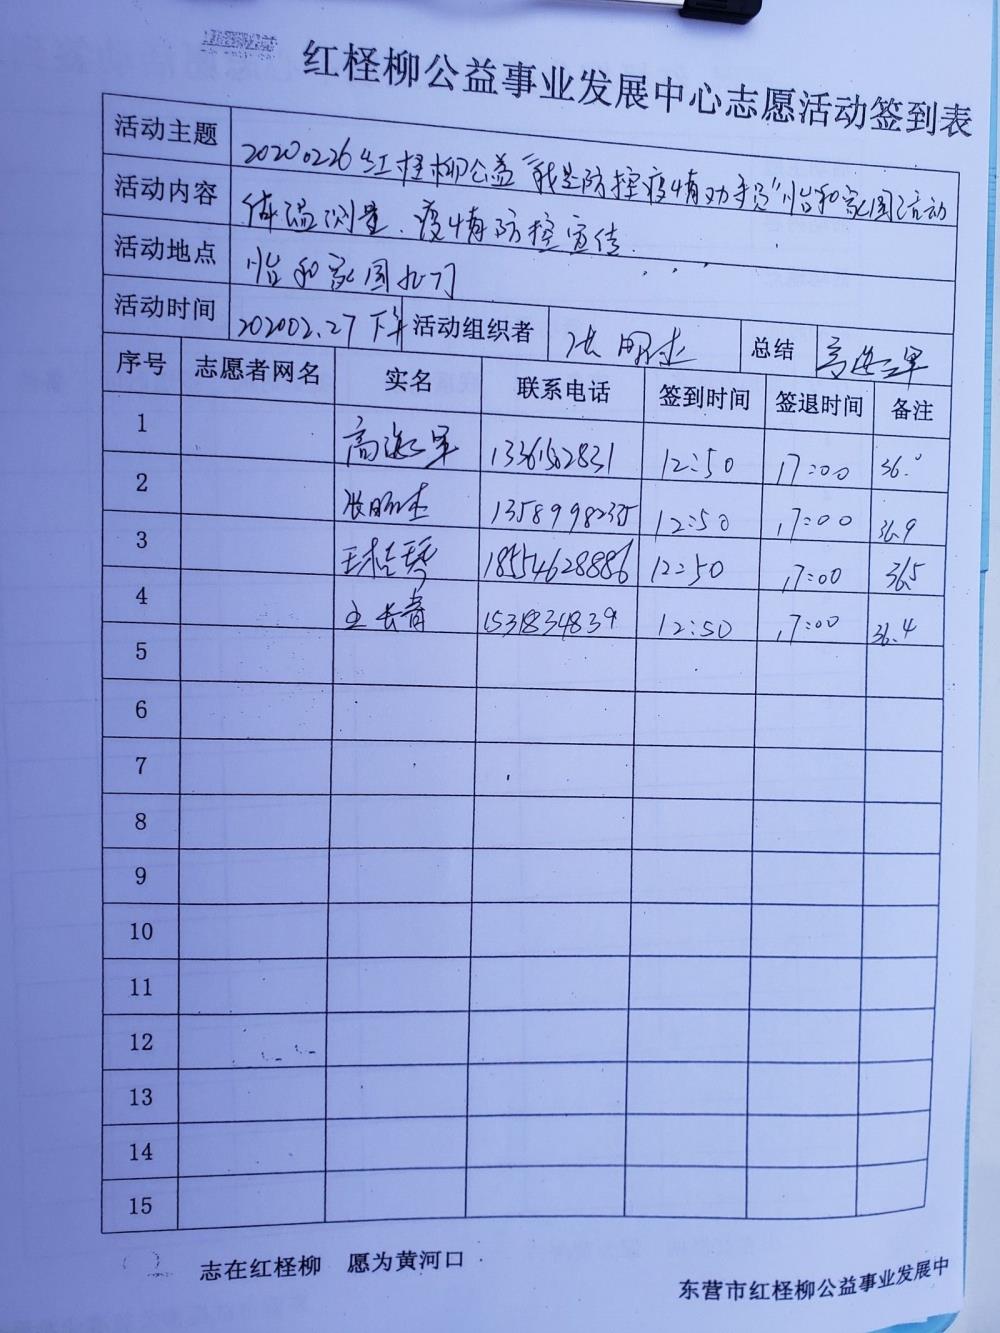 红柽柳公益事业发展中心志愿活动签到表
活动主题 20200226红柽柳公益“我是防控疫情劝导员”怡和家园活动
活动内容 体温测量、疫情防控宣传.
活动地点 怡和家园北门
活动时间 202002.27下午 活动组织者 张明杰 总结
序号 志愿者网名 实名 联系电话 签到时间 签退时间 备注
1 12:50 17:00 36.
2 张明杰 12:50 17:00 36.9
3 王桂琴 18554628886 12:50 17:00 36.5
4 长青 15318344839 12:50 17:00 36.4
5
6
7
8
9
10
11
12
13
14
15
志在红柽柳 愿为黄河口
东营市红柽柳公益事业发展中